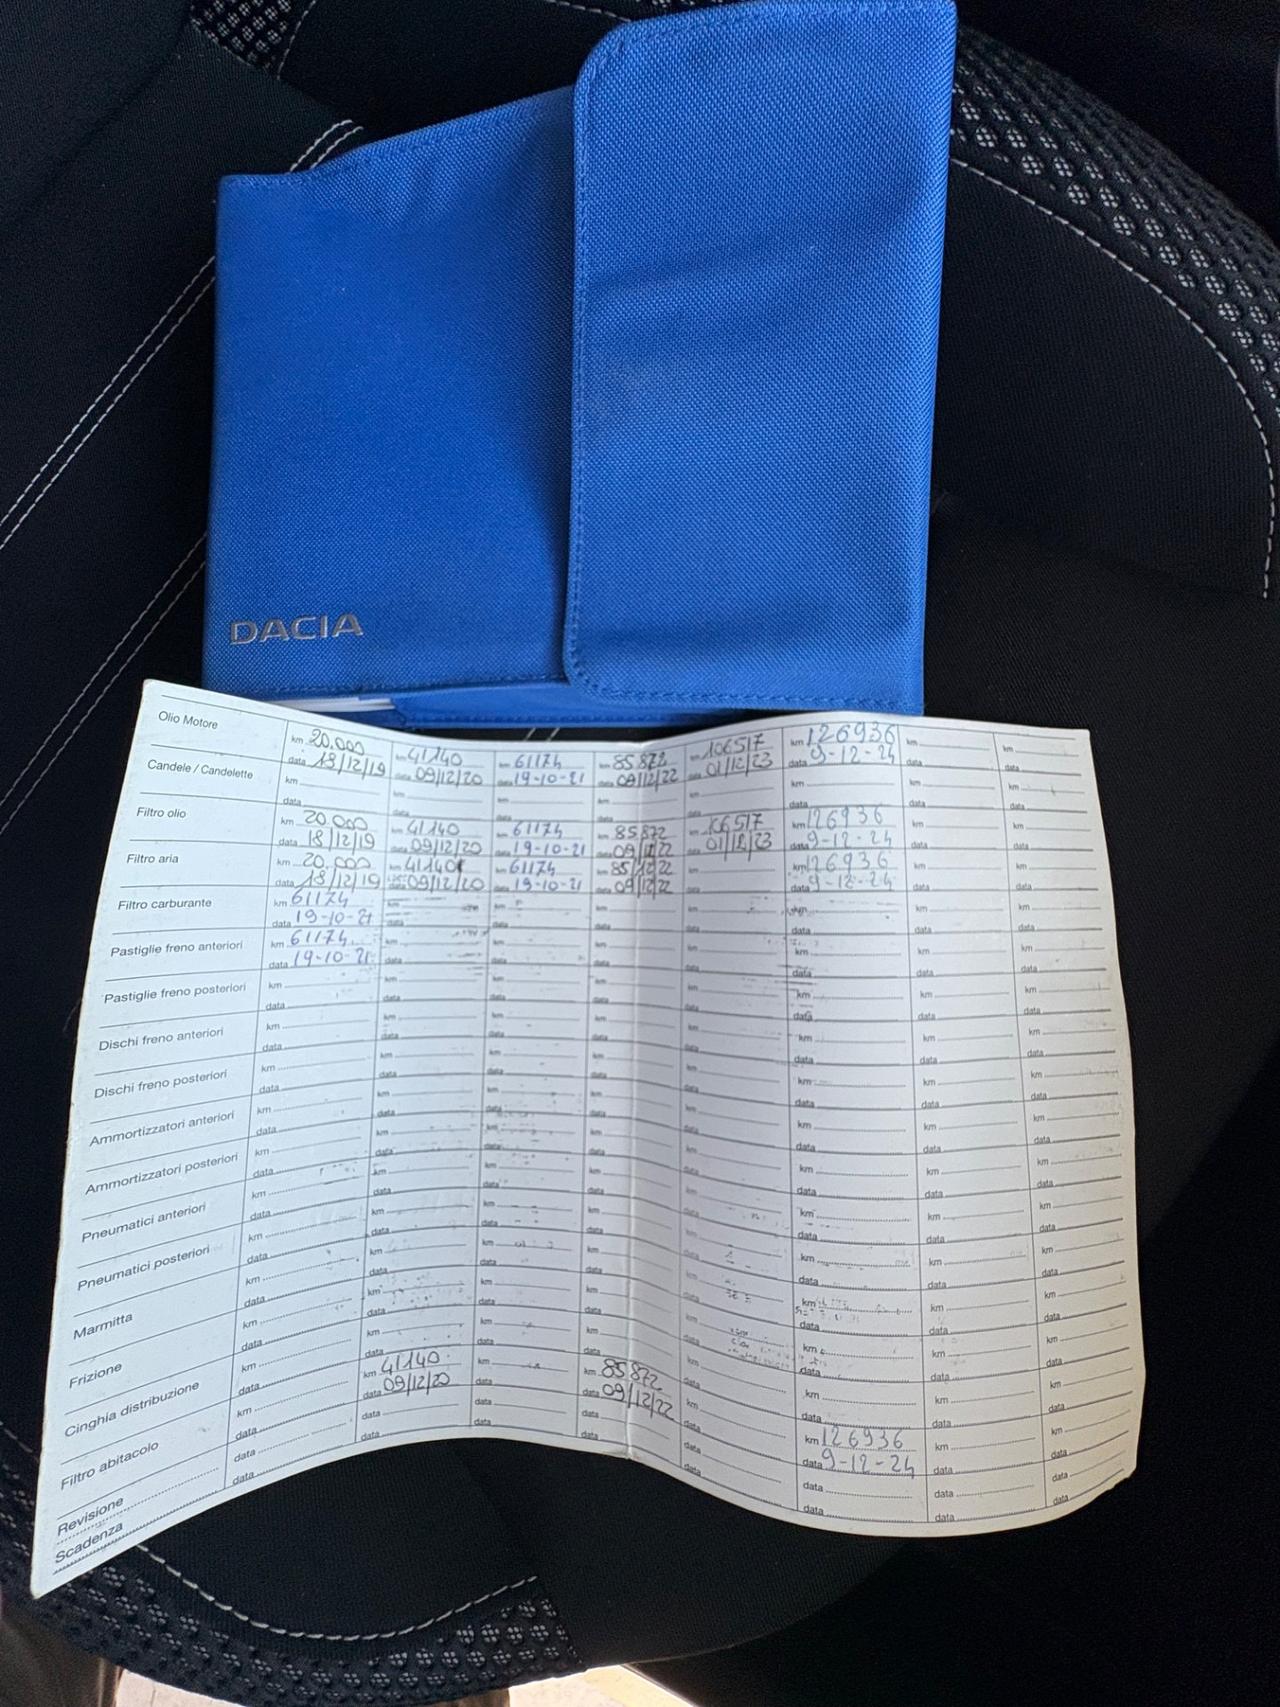 DACIA
Olio Motore
km 20.000 km 41140 km 61174 km 85872 km 106517 km 126936 km km
data 18/12/19 data 09/12/20 data 19-10-21 data 09/12/22 data 01/12/23 data 9-12-24 data data
Candele / Candelette
km km km km km km km km
data data data data data data data data
Filtro olio
km 20.000 km 41140 km 61174 km 85872 km 106517 km 126936 km km
data 18/12/19 data 09/12/20 data 19-10-21 data 09/12/22 data 01/12/23 data 9-12-24 data data
Filtro aria
km 20.000 km 41140 km 61174 km 85/12/22 km km 126936 km km
data 18/12/19 data 09/12/20 data 19-10-21 data 09/12/22 data data 9-12-24 data data
Filtro carburante
km 61174 km km km km km km km
data 19-10-21 data data data data data data data
Pastiglie freno anteriori
km 61174 km km km km km km km
data 19-10-21 data data data data data data data
Pastiglie freno posteriori
km km km km km km km km
data data data data data data data data
Dischi freno anteriori
km km km km km km km km
data data data data data data data data
Dischi freno posteriori
km km km km km km km km
data data data data data data data data
Ammortizzatori anteriori
km km km km km km km km
data data data data data data data data
Ammortizzatori posteriori
km km km km km km km km
data data data data data data data data
Pneumatici anteriori
km km km km km km km km
data data data data data data data data
Pneumatici posteriori
km km km km km km km km
data data data data data data data data
Marmitta
km km km km km km km km
data data data data data data data data
Frizione
km km km km km km km km
data data data data data data data data
Cinghia distribuzione
km km km km km km km km
data data data data data data data data
Filtro abitacolo
km km 41140 km km 85872 km km 126936 km km
data data 09/12/20 data data 09/12/22 data data 9-12-24 data data
Revisione
data data data data data data data data
Scadenza
data data data data data data data data